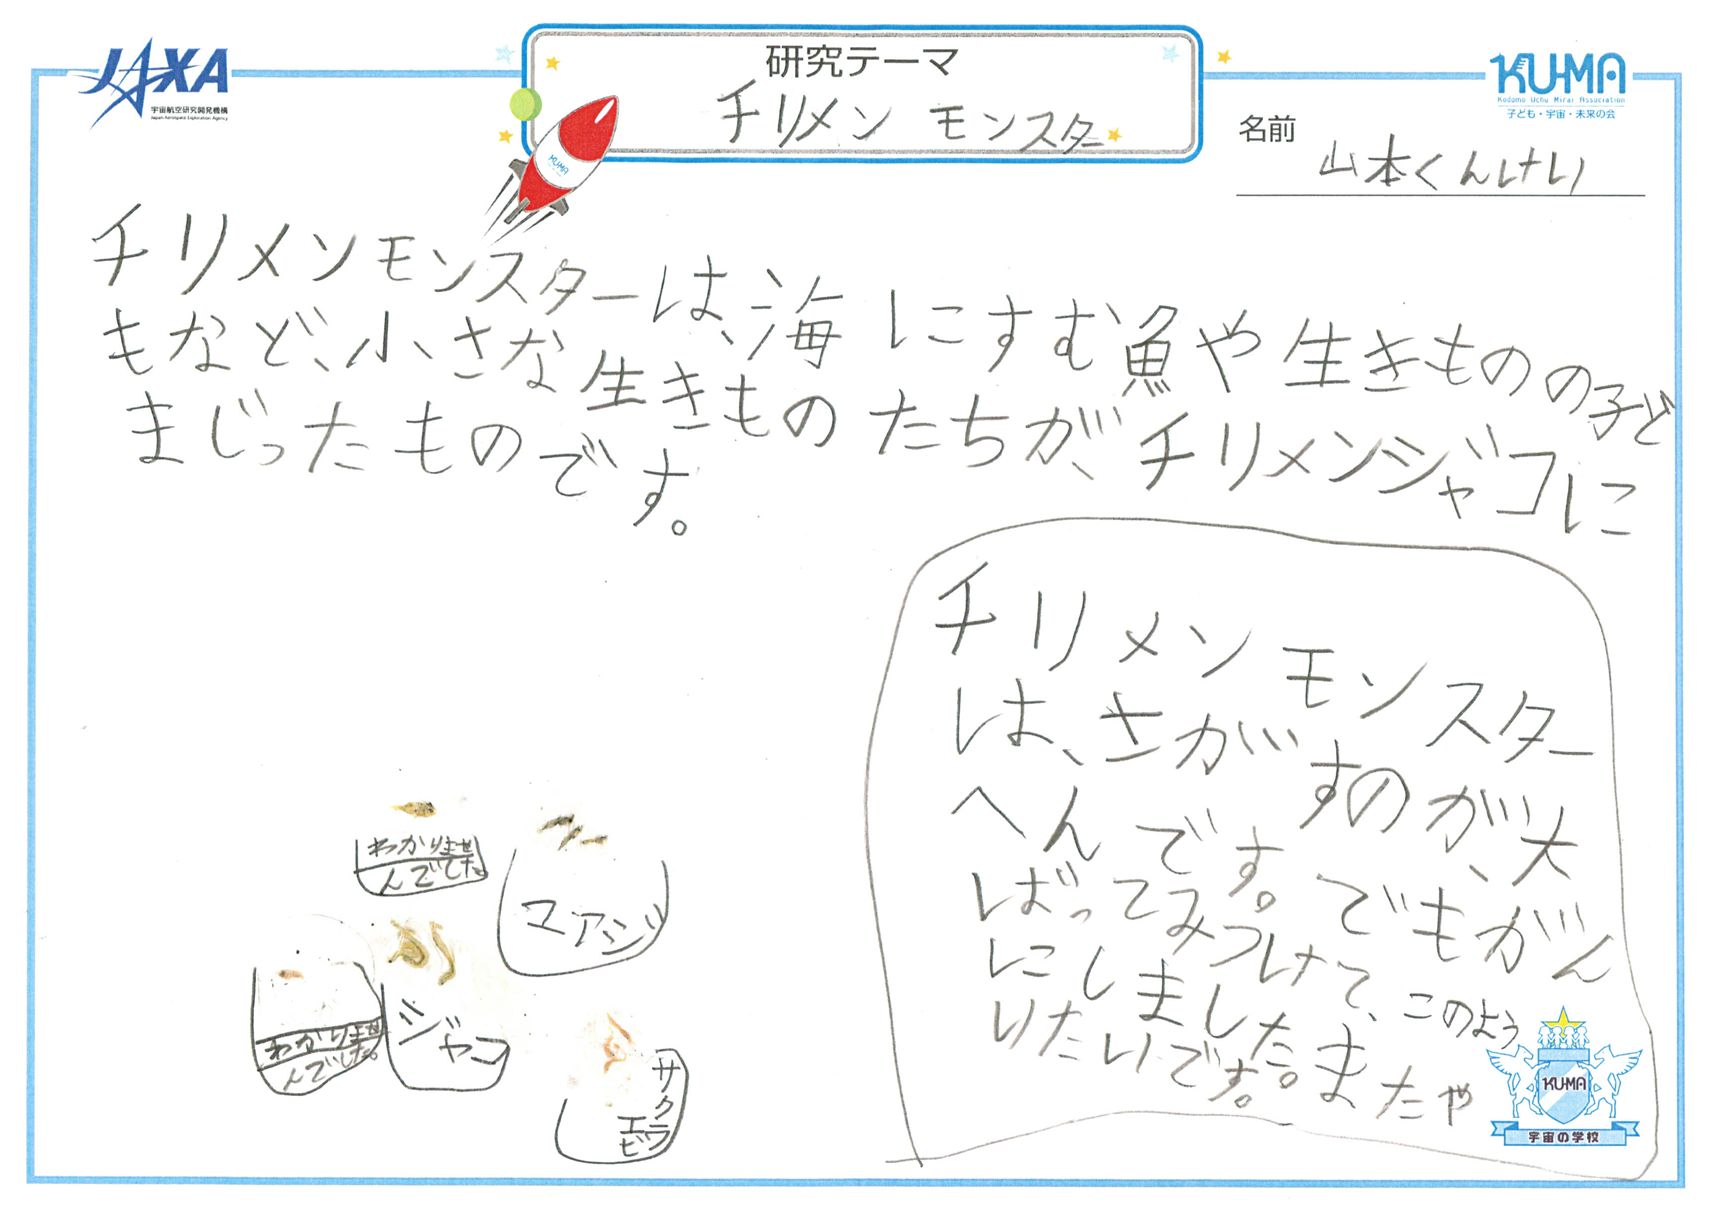 JAXA
宇宙航空研究開発機構
Japan Aerospace Exploration Agency
研究テーマ
チリメンモンスター
KUMA
Kodomo Uchu Mirai Association
子ども・宇宙・未来の会
名前
山本くんけい
KUMA
チリメンモンスターは、海にすむ魚や生きものの子ど
もなど、小さな生きものたちが、チリメンジャコに
まじったものです。
チリメンモンスター
は、さがすのが、大
へんです。でもがん
ばってみつけて、このよう
にしました。またや
りたいです。
わかりませ
んでした。
マアジ
わかりませ
んでした。
ジャコ
サクラ
エビ
KUMA
宇宙の学校